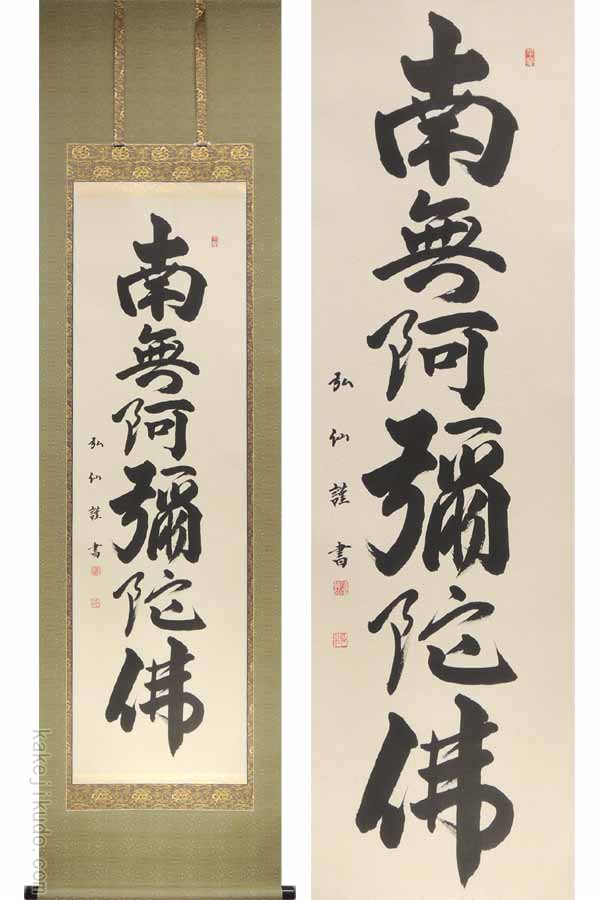 南無阿彌陀佛
弘仙謹書
南無阿彌陀佛
弘仙謹書
kakejikudo.com